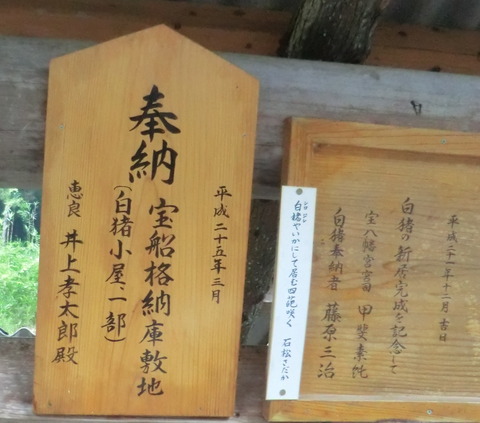 平成二十五年三月
奉納 宝船格納庫敷地
(白猪小屋一部)
恵良 井上孝太郎殿
平成二十一年十二月 吉日
白猪の新居完成を記念して
宝八幡宮宮司 甲斐素純
白猪奉納者 藤原三治
いかにして居む四葩咲く 石松さだか